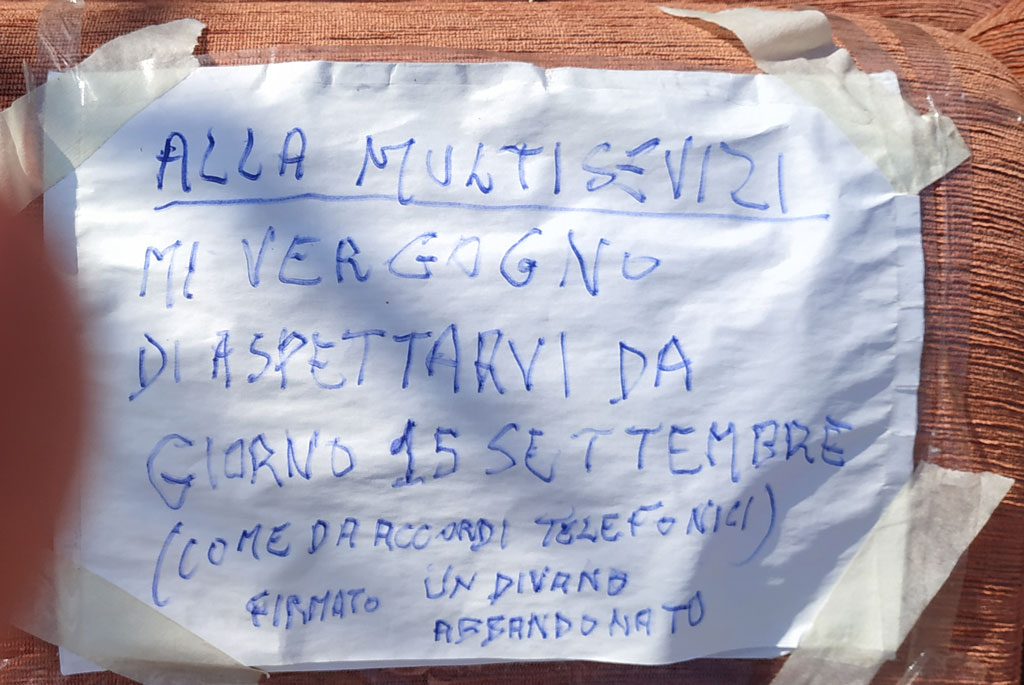 ALLA MULTISEVIZI
MI VERGOGNO
DI ASPETTARVI DA
GIORNO 15 SETTEMBRE
(COME DA ACCORDI TELEFONICI)
FIRMATO UN DIVANO
ABBANDONATO